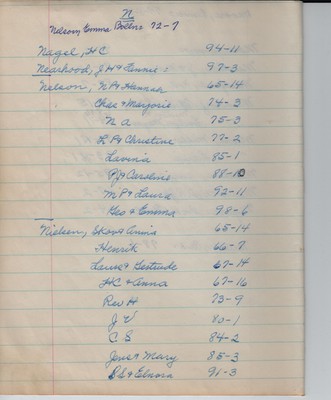 N
Nelson, Emma Bollne 72-7
Nagel, H C 94-11
Nearhood, J H & Fannie: 97-3
Nelson, N P & Hannah 65-14
Chas & Marjorie 74-3
N A 75-3
L P & Christine 77-2
Lavina 85-1
P J & Caroline 88-10
M P & Laura 92-11
Geo & Emma 98-6
Nielsen, Skov & Annia 65-14
Henrik 66-7
Laurs & Gertrude 67-14
H C & Anna 67-16
Rev H 73-9
J V 80-1
C S 84-2
Jens & Mary 85-3
& Elnora 91-3